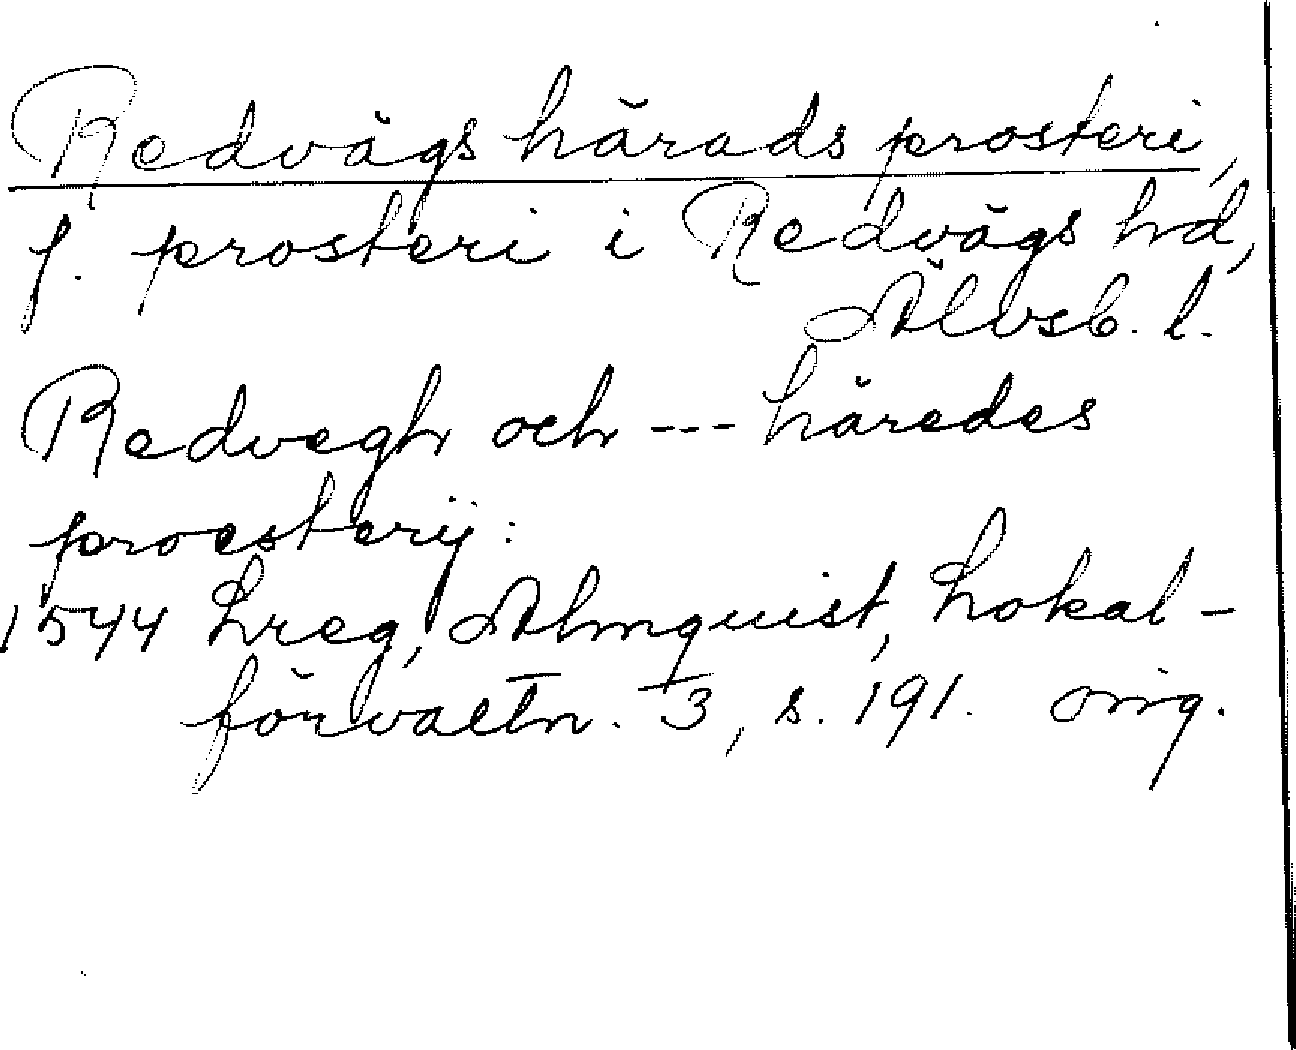 Redvägs härads prosteri,
f. prosteri i Redvägs hd,
Älvsb. l.
Redvegh och --- häredes
proesterij:
1544 Lreg, Almquist, Lokal-
förvaltn. 3, s. 191. orig.